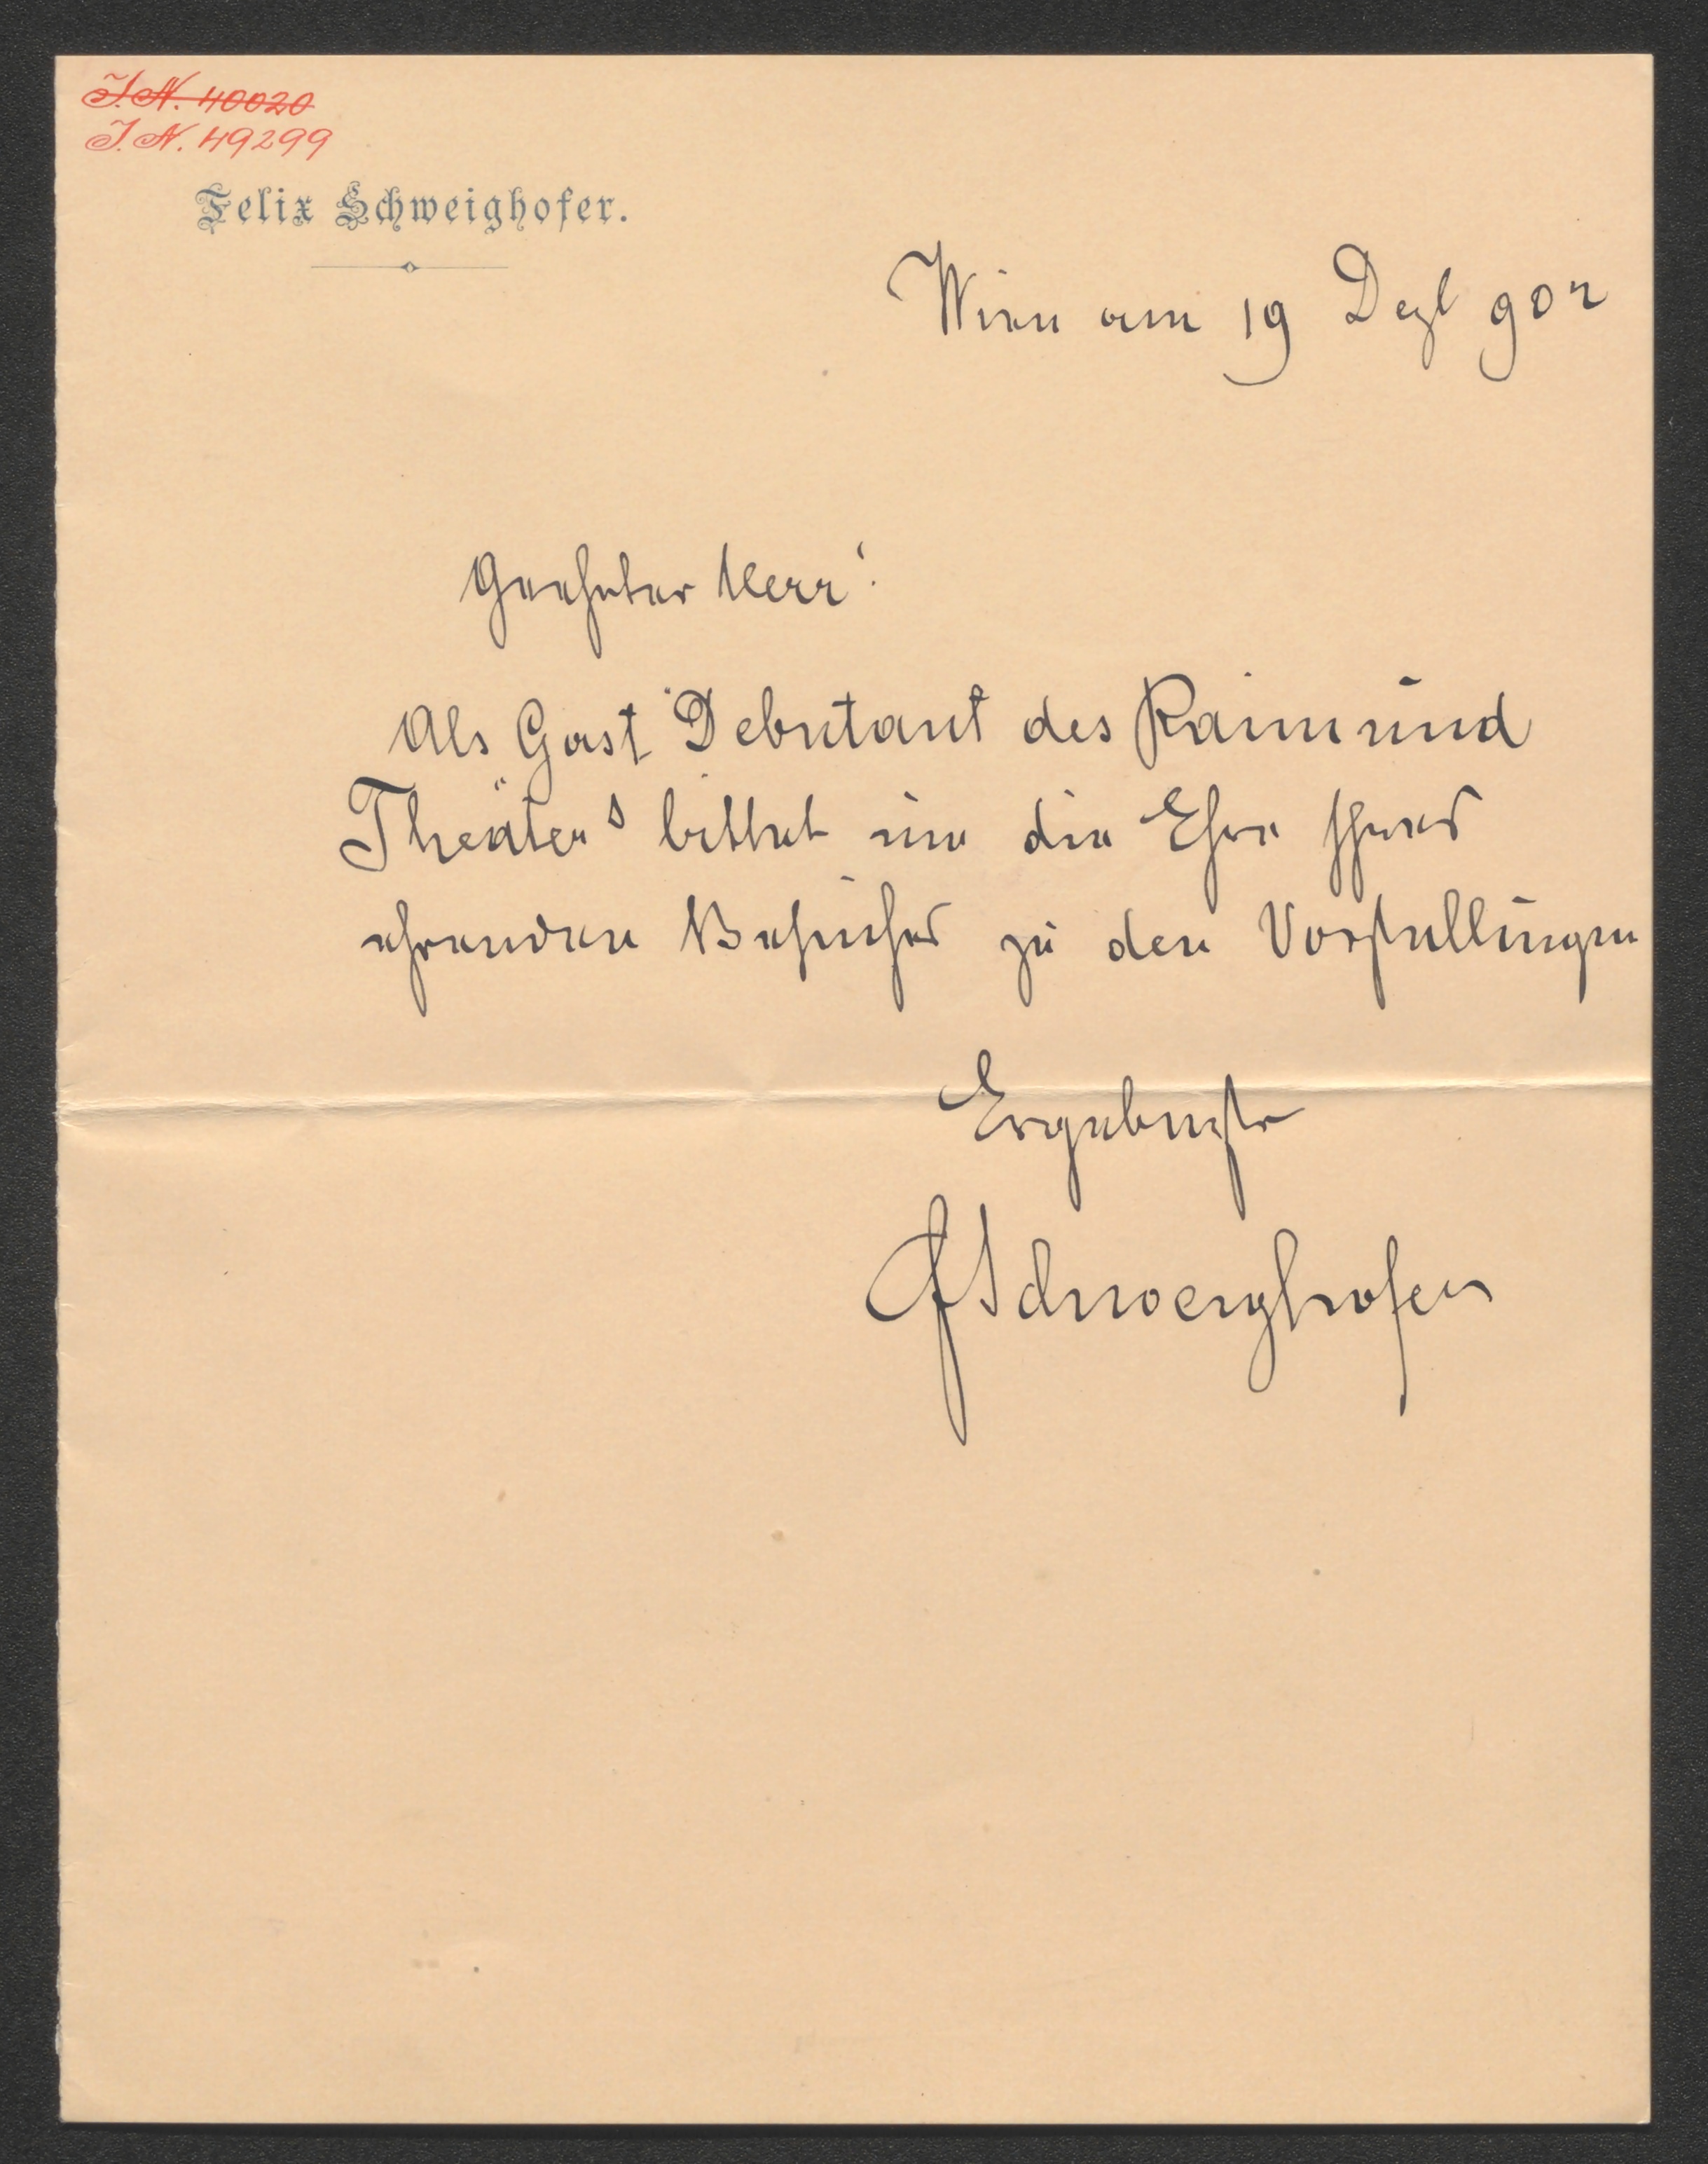 I.N. 40020
I.N. 49299
Felix Schweighofer.
Wien am 19 Dezb 902
Geehrter Herr!
Als Gast "Debutant des Raimund
Theater"s bittet um die Ehre Ihres
ehrenden Besuches zu den Vorstellungen
Ergebenster
FSchweighofer